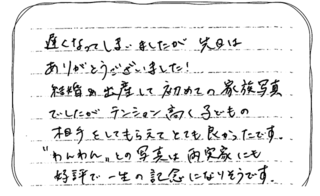 遅くなってしまいましたが 先日は
ありがとうございました!
結婚・出産して初めての家族写真
でしたが テンション高く子どもの
相手をしてもらえてとても良かったです。
"わんわん"との写真は両実家にも
好評で一生の記念になりそうです。